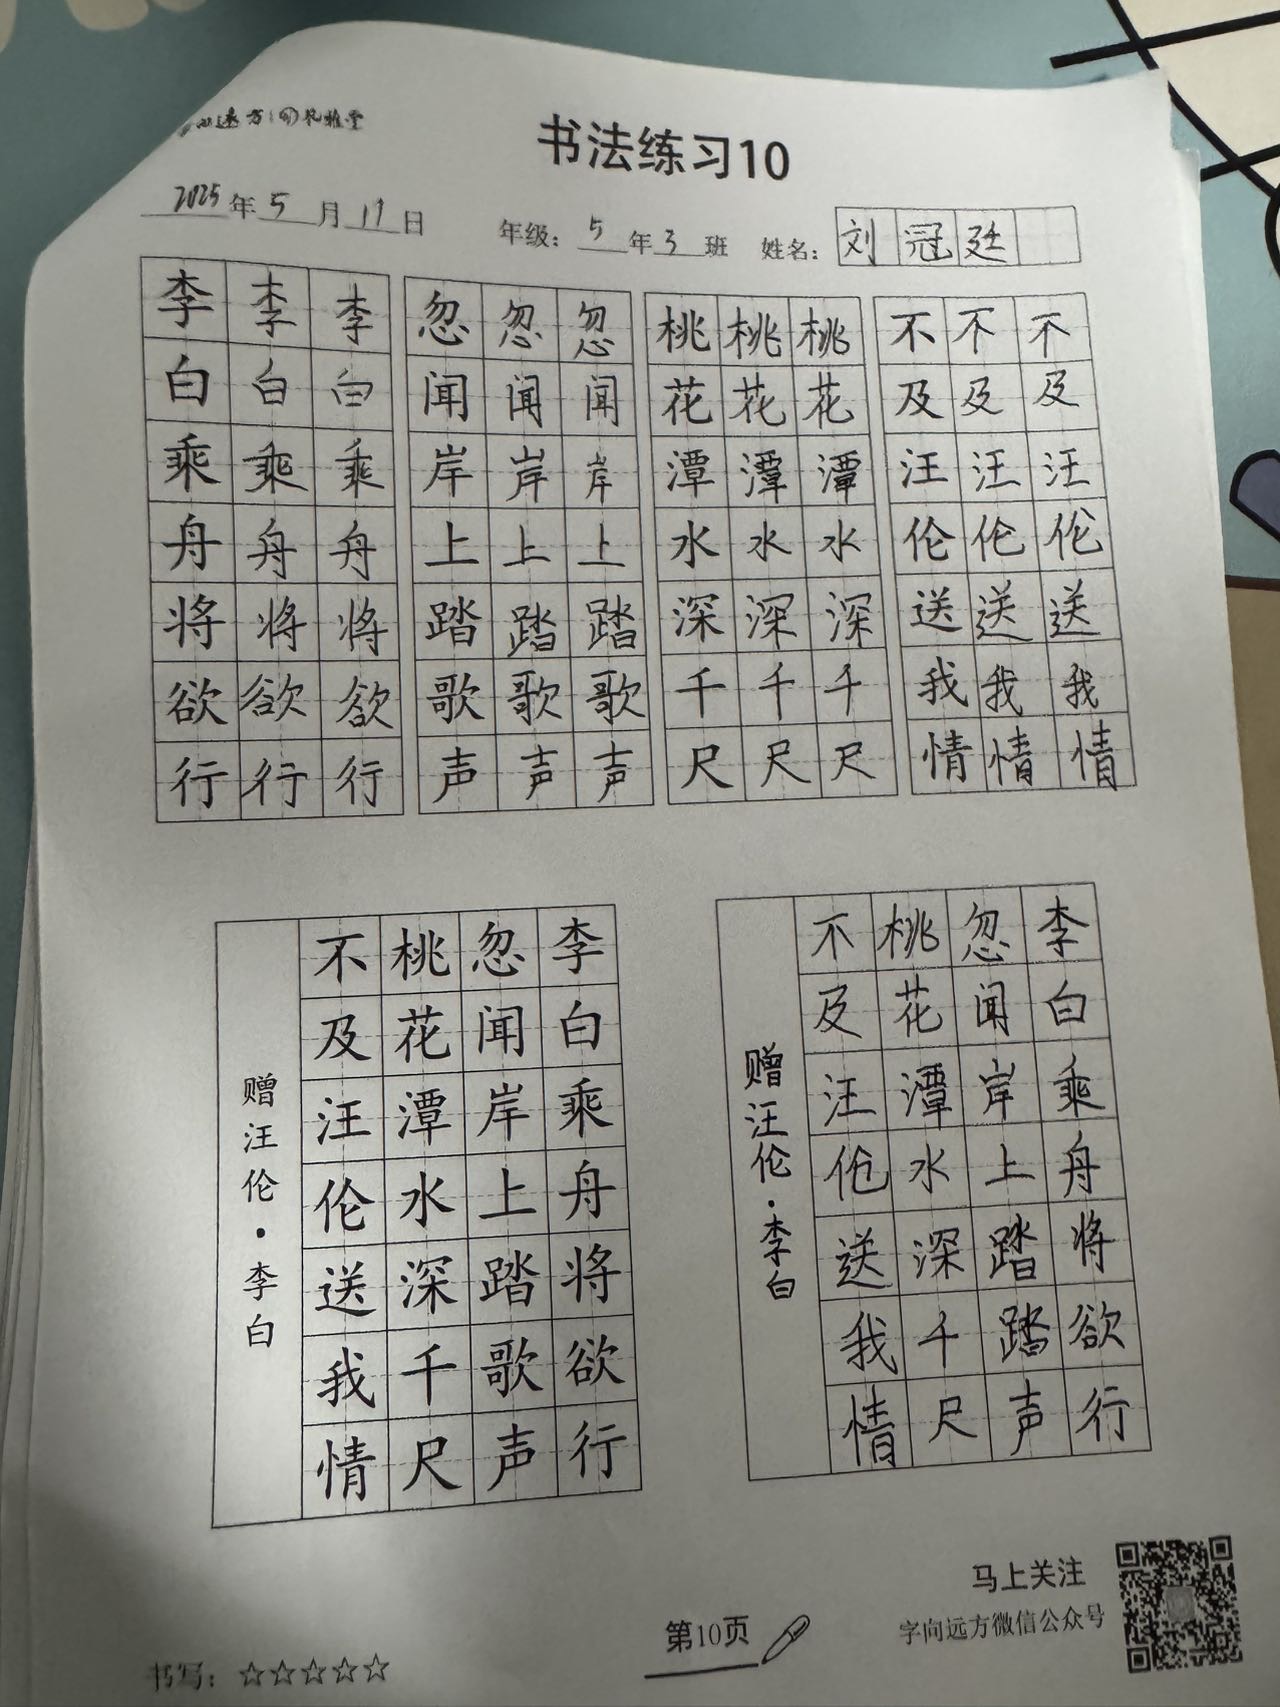 书法练习10
2025年5月17日 年级：5年3班 姓名：刘冠廷
李李李 忽忽忽 桃桃桃 不不不
白白白 闻闻闻 花花花 及及及
乘乘乘 岸岸岸 潭潭潭 汪汪汪
舟舟舟 上上上 水水水 伦伦伦
将将将 踏踏踏 深深深 送送送
欲欲欲 歌歌歌 千千千 我我我
行行行 声声声 尺尺尺 情情情
李白乘舟将欲行
忽闻岸上踏歌声
桃花潭水深千尺
不及汪伦送我情
赠汪伦·李白
李白乘舟将欲行
忽闻岸上踏踏声
桃花潭水深千尺
不及汪伦送我情
赠汪伦·李白
马上关注
字向远方微信公众号
第10页
书写：☆☆☆☆☆